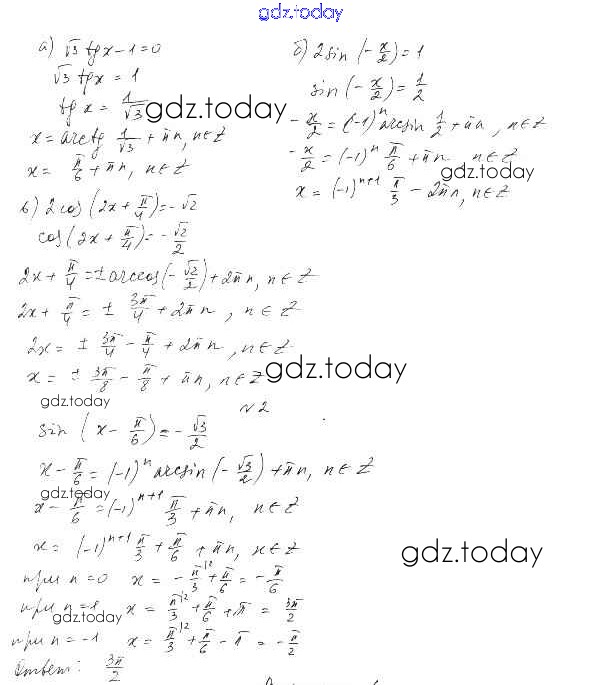 gdz.today
а) √3 tg x − 1 = 0
√3 tg x = 1
tg x = 1/√3
x = arctg 1/√3 + πn, n∈Z
x = π/6 + πn, n∈Z
б) 2 sin (−x/2) = 1
sin (−x/2) = 1/2
−x/2 = (−1)^n arcsin 1/2 + πn, n∈Z
−x/2 = (−1)^n π/6 + πn, n∈Z
x = (−1)^(n+1) π/3 − 2πn, n∈Z
gdz.today
gdz.today
в) 2 cos (2x + π/4) = −√2
cos (2x + π/4) = −√2/2
2x + π/4 = ± arccos (−√2/2) + 2πn, n∈Z
2x + π/4 = ± 3π/4 + 2πn, n∈Z
2x = ± 3π/4 − π/4 + 2πn, n∈Z
x = ± 3π/8 − π/8 + πn, n∈Z
gdz.today
gdz.today
№2
sin (x − π/6) = −√3/2
x − π/6 = (−1)^n arcsin (−√3/2) + πn, n∈Z
gdz.today
x − π/6 = (−1)^(n+1) π/3 + πn, n∈Z
x = (−1)^(n+1) π/3 + π/6 + πn, n∈Z
gdz.today
при n = 0 x = −π/3 + π/6 = −π/6
при n = 1 x = π/3 + π/6 + π = 3π/2
gdz.today
при n = −1 x = π/3 + π/6 − π = −π/2
Ответ: 3π/2